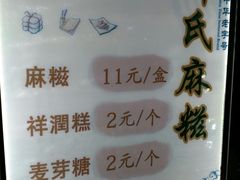 麻糍 11元/盒
祥潤糕 2元/个
麦芽糖 2元/个
氏麻糍
中华老字号